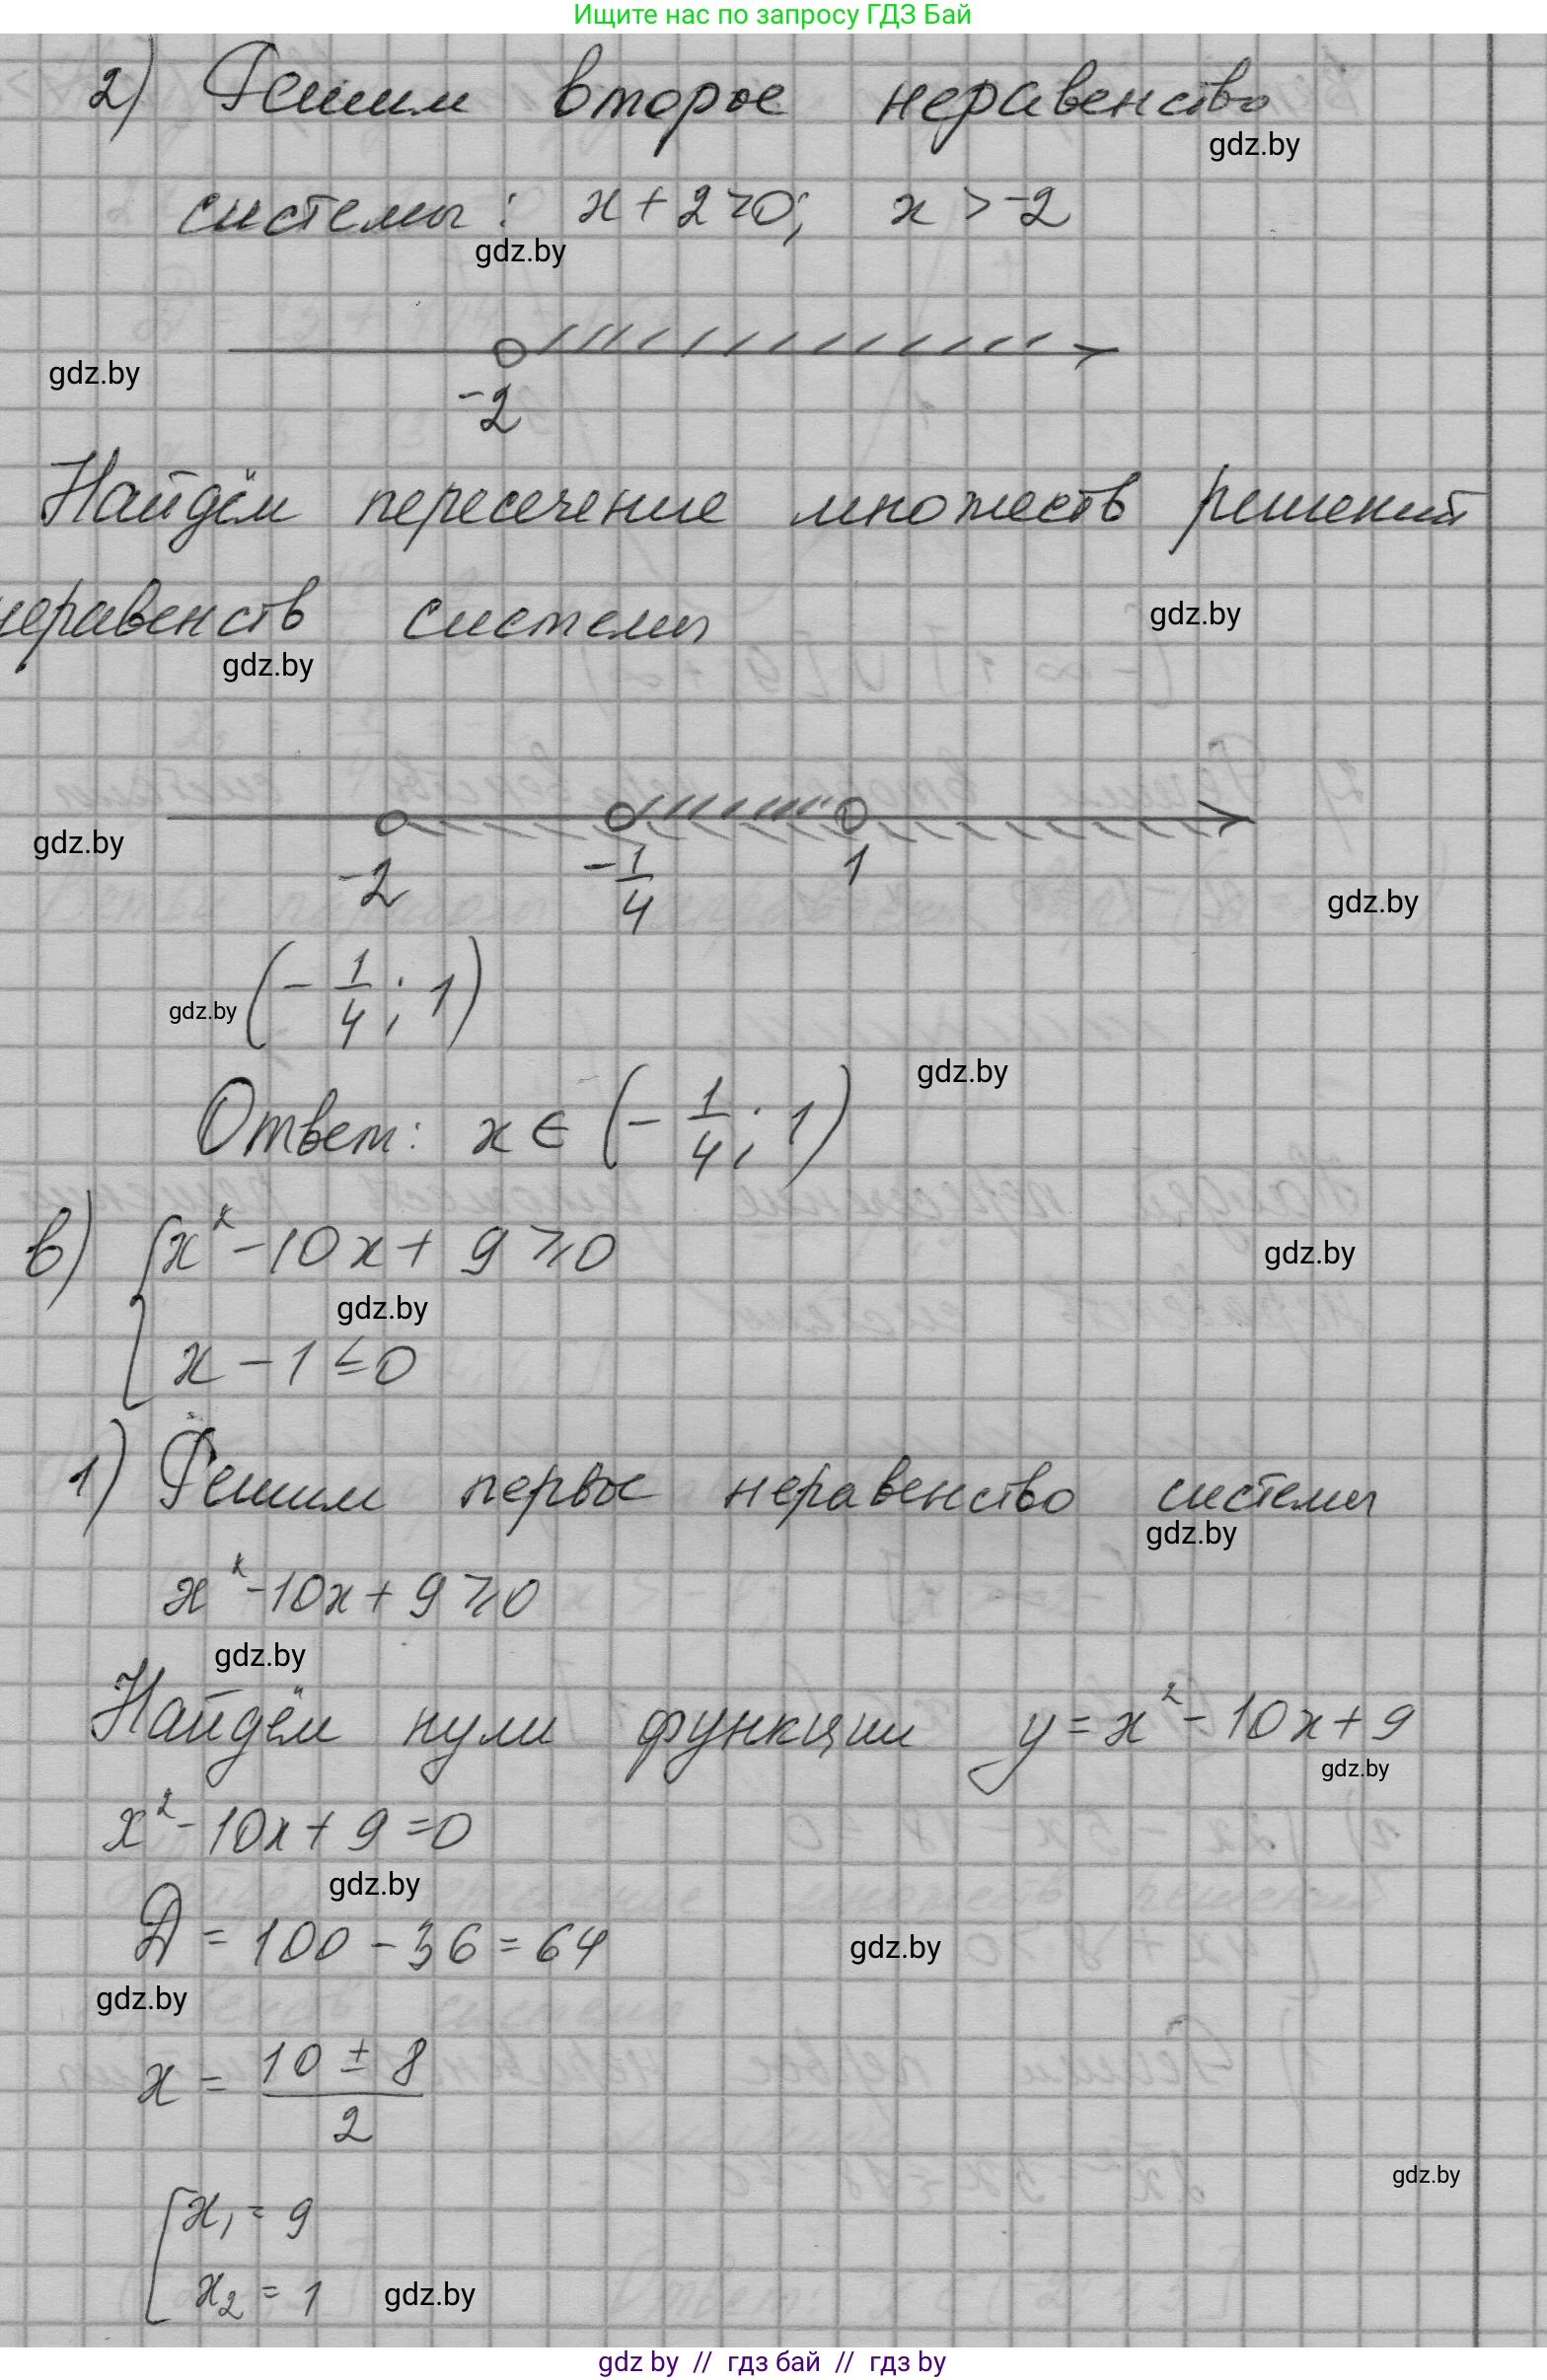 Ищите нас по запросу ГДЗ Бай
2) Решим второе неравенство
gdz.by
системы: x + 2 > 0; x > -2
gdz.by
gdz.by
-2
Найдём пересечение множеств решений
неравенств системы
gdz.by
gdz.by
gdz.by
-2 -1/4 1
gdz.by
gdz.by (-1/4; 1)
gdz.by
Ответ: x ∈ (-1/4; 1)
в) { x² - 10x + 9 ≥ 0
gdz.by
gdz.by
x - 1 ≤ 0
1) Решим первое неравенство системы
gdz.by
x² - 10x + 9 ≥ 0
gdz.by
Найдём нули функции y = x² - 10x + 9
gdz.by
x² - 10x + 9 = 0
gdz.by
D = 100 - 36 = 64
gdz.by
gdz.by
x = (10 ± 8)/2
gdz.by
[ x₁ = 9
x₂ = 1
gdz.by
gdz by // гдз бай // гдз by